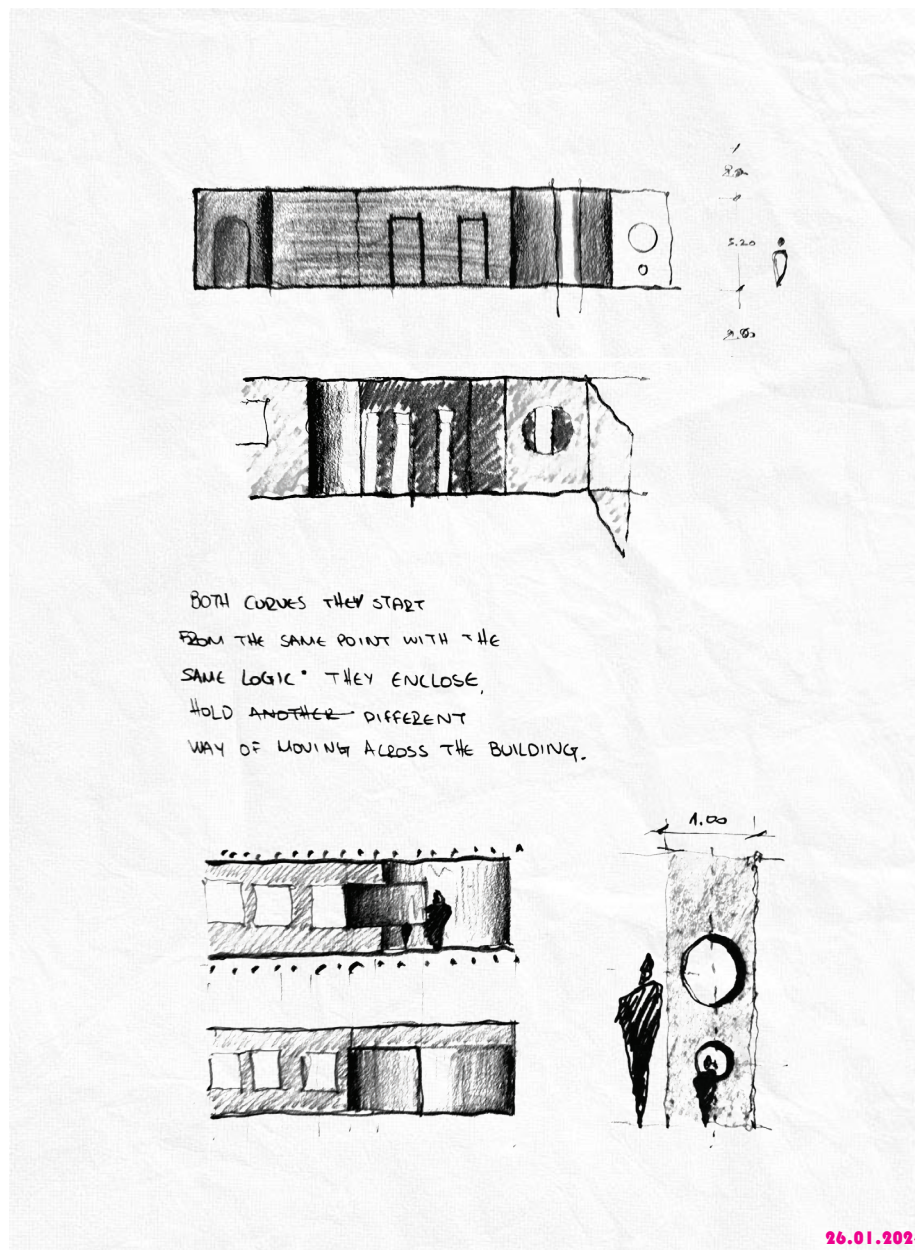 5.20
BOTH CURVES THEY START
FROM THE SAME POINT WITH THE
SAME LOGIC. THEY ENCLOSE,
HOLD ANOTHER DIFFERENT
WAY OF MOVING ACROSS THE BUILDING.
1.00
26.01.202